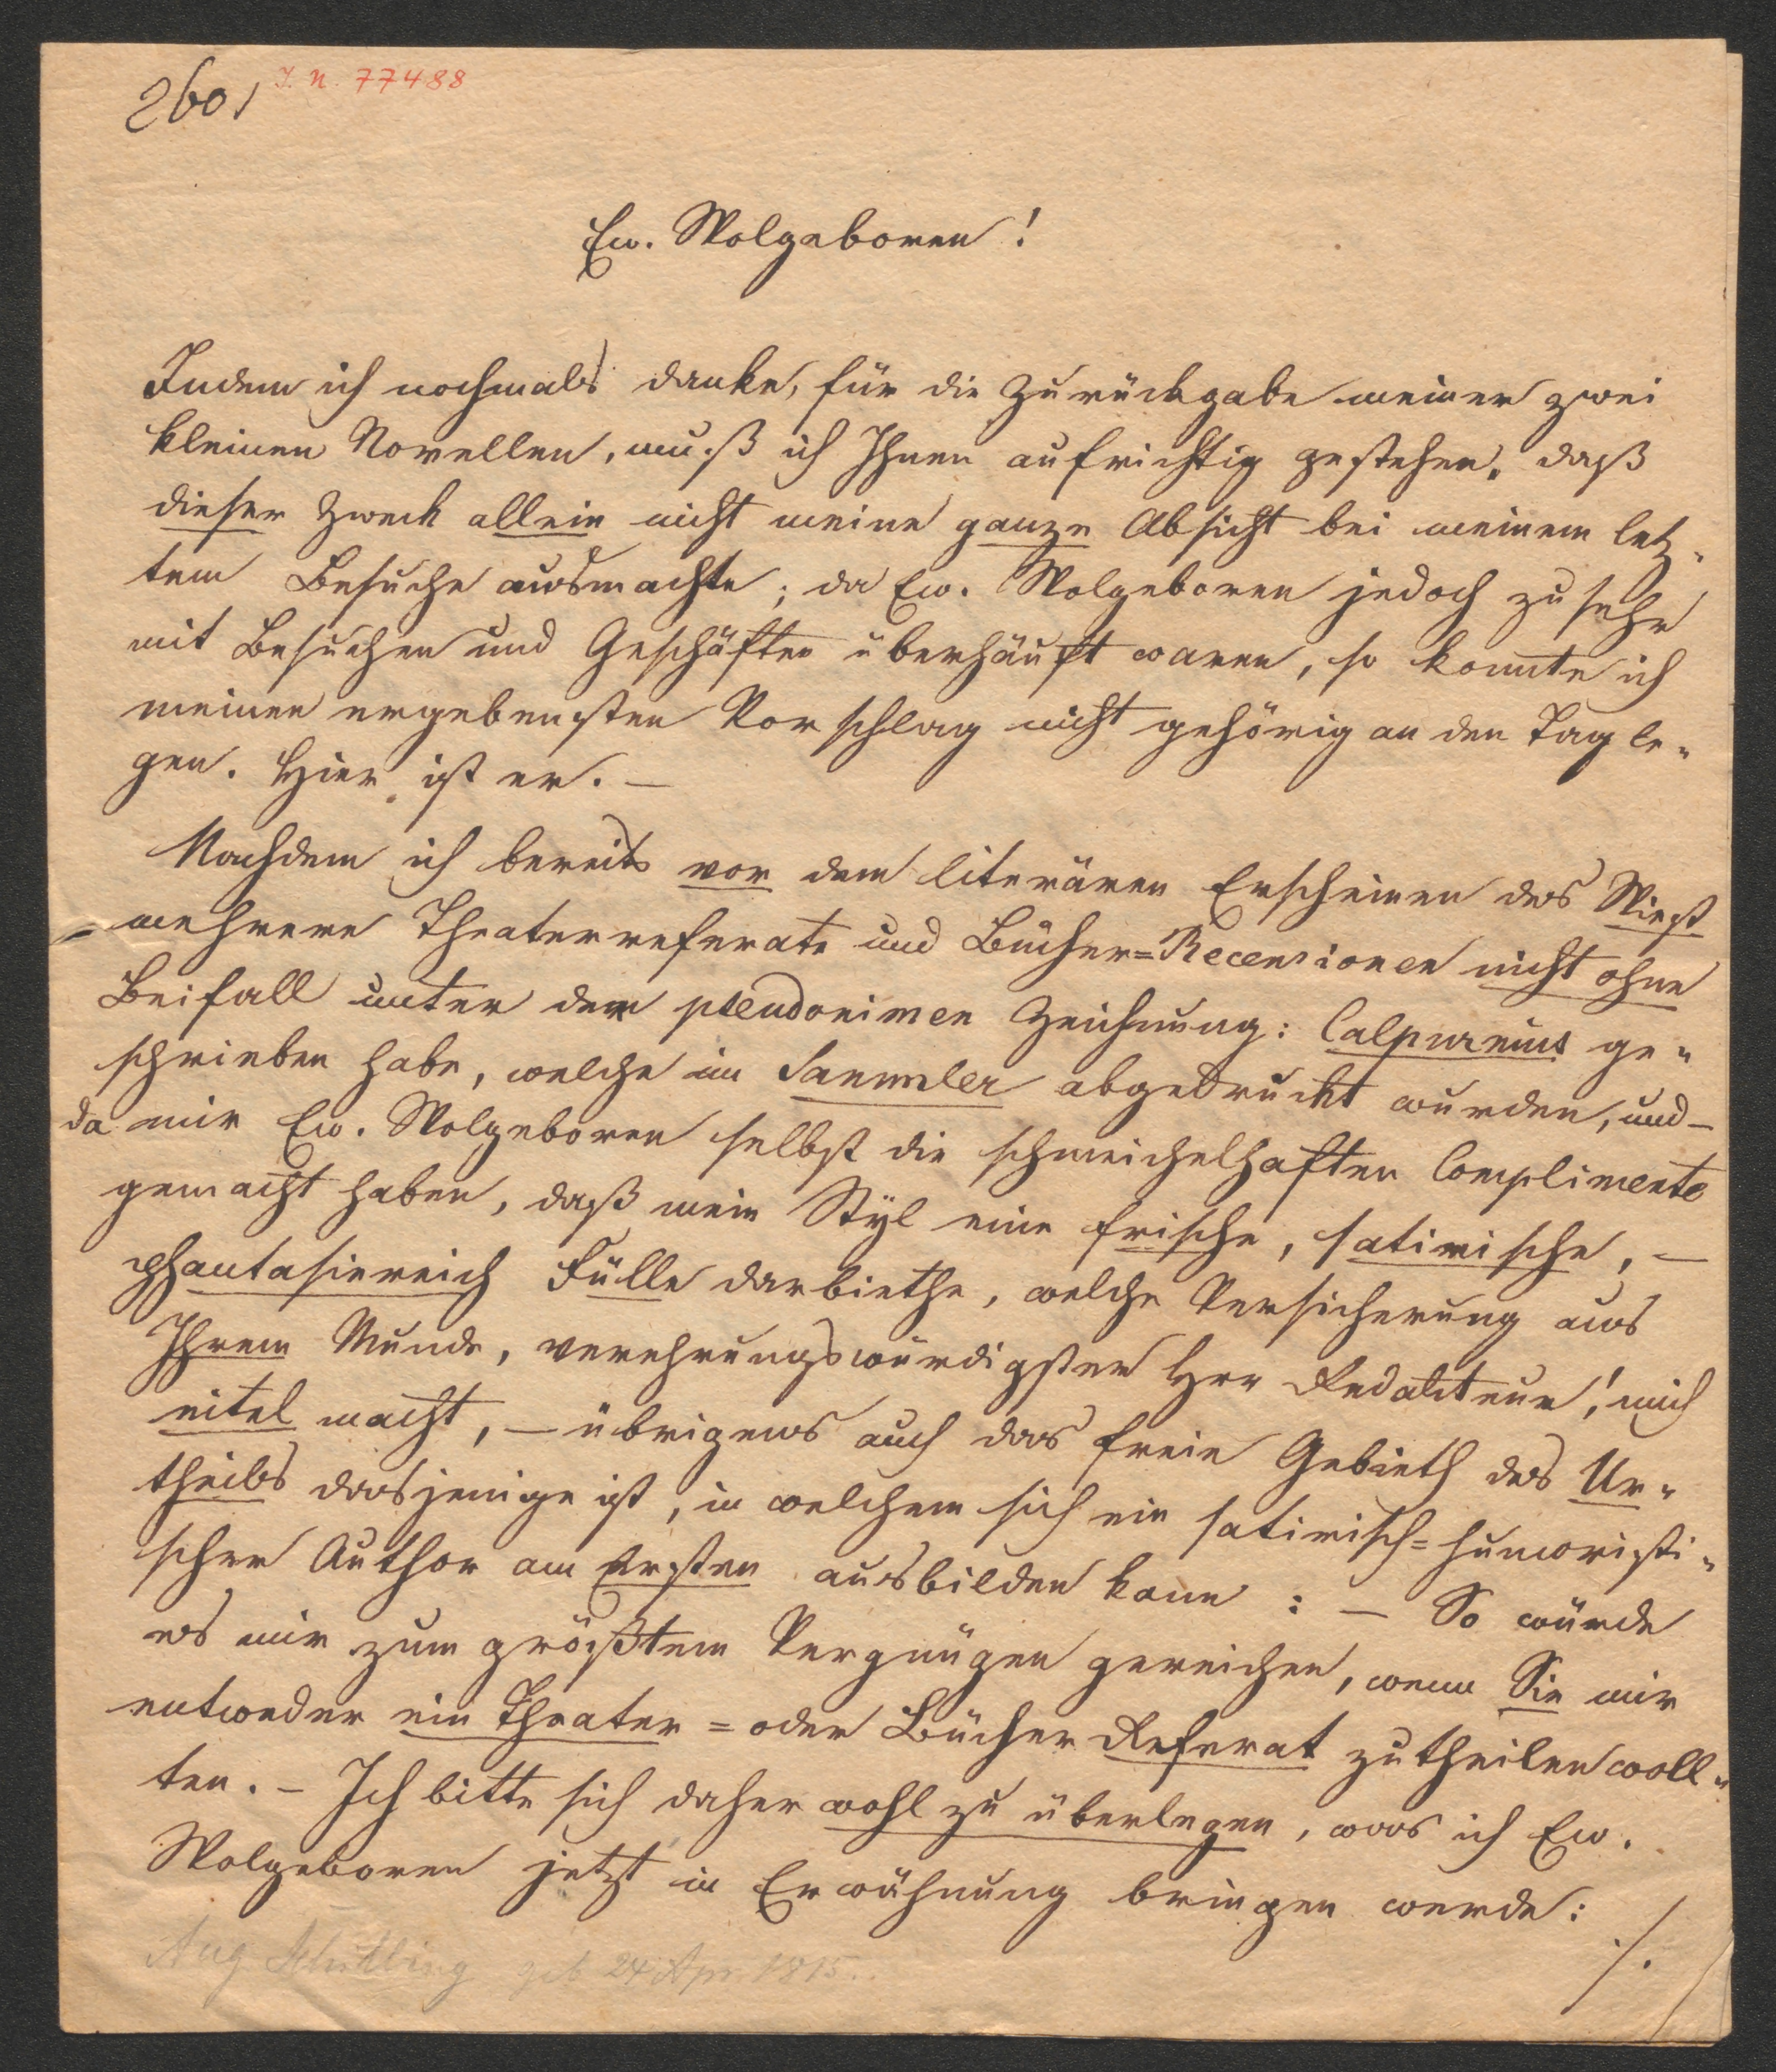 2601 I. N. 77488
Ew. Wolgeboren!
Indem ich nochmals danke, für die Zurückgabe meiner zwei
kleinen Novellen, muß ich Ihnen aufrichtig gestehen, daß
dieser Zweck allein nicht meine ganze Absicht bei meinem letz„
tem Besuche ausmachte; da Ew. Wolgeboren jedoch zu sehr
mit Besuchen und Geschäften überhäuft waren, so konnte ich
meinen ergebensten Vorschlag nicht gehörig an den Tag le„
gen. Hier ist er. –
Nachdem ich bereits vor dem literären Erscheinen des Wiest
mehrere Theaterreferate und Bücher=Recensionen nicht ohne
Beifall unter der pseudonimen Zeichnung: Calpurnius ge„
schrieben habe, welche im Sammler abgedruckt wurden, und –
da mir Ew. Wolgeboren selbst die schmeichelhaften Complimente
gemacht haben, daß mein Styl eine frische, satirische, –
phantasiereich Fülle darbiethe, welche Versicherung aus
Ihrem Munde, verehrungswürdigster Herr Redakteur! mich
eitel macht, – übrigens auch das freie Gebieth des Ur„
theils dasjenige ist, in welchem sich ein satirisch=humoristi„
scher Author am Ersten ausbilden kann: – So würde
es mir zum größtem Vergnügen gereichen, wenn Sie mir
entweder ein Theater= oder Bücher Referat zutheilen woll„
ten. – Ich bitte sich daher wohl zu überlegen, was ich Ew.
Wolgeboren jetzt in Erwähnung bringen werde:
./.
Aug geb 24 Apr. 1815.